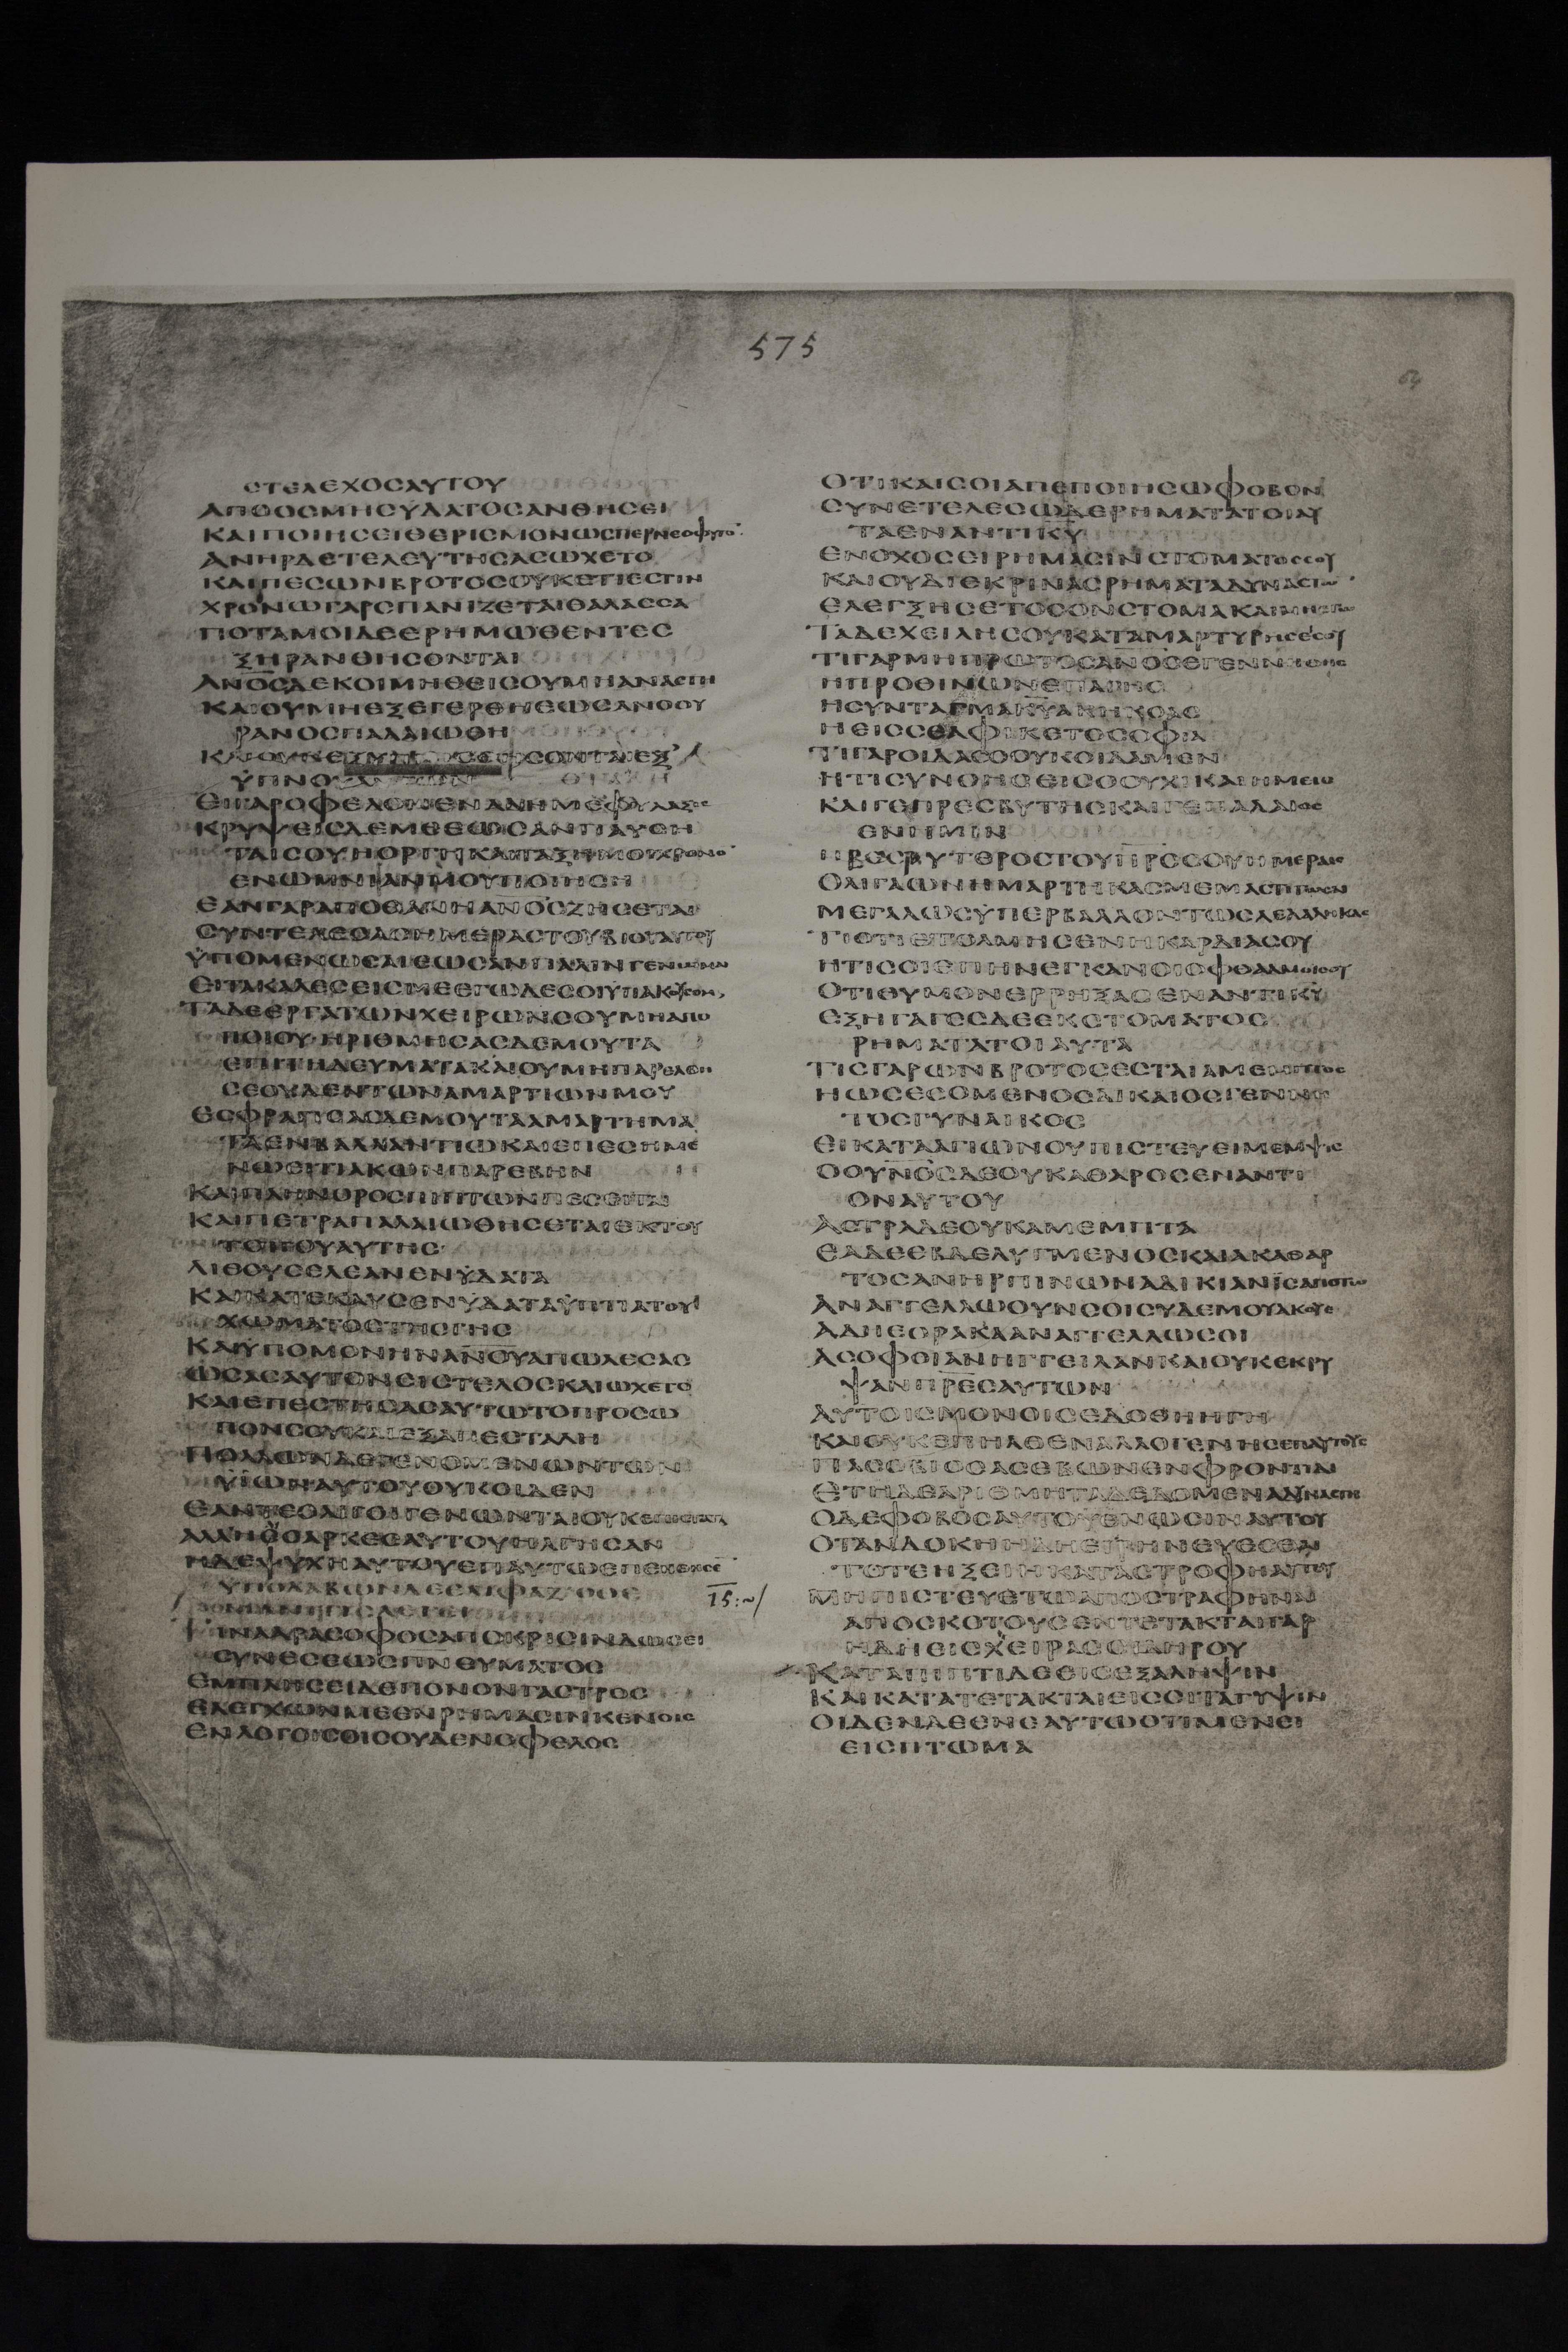 575
64
ϹΤΕΛΕΧΟϹΑΥΤΟΥ
ΑΠΟΟϹΜΗϹΥΔΑΤΟϹΑΝΘΗϹΕΙ
ΚΑΙΠΟΙΗϹΕΙΘΕΡΙϹΜΟΝΩϹΠΕΡΝΕΟΦΥΤΟ
ΑΝΗΡΔΕΤΕΛΕΥΤΗϹΑϹΩΧΕΤΟ
ΚΑΙΠΕϹΩΝΒΡΟΤΟϹΟΥΚΕΤΙΕϹΤΙΝ
ΧΡΟΝΩΓΑΡϹΠΑΝΙΖΕΤΑΙΘΑΛΑϹϹΑ
ΠΟΤΑΜΟΙΔΕΕΡΗΜΩΘΕΝΤΕϹ
ΞΗΡΑΝΘΗϹΟΝΤΑΙ
ΑΝΟϹΔΕΚΟΙΜΗΘΕΙϹΟΥΜΗΑΝΑϹΤΗ
ΚΑΙΟΥΜΗΕΞΕΓΕΡΘΗΕΩϹΑΝΟΟΥ
ΡΑΝΟϹΠΑΛΑΙΩΘΗ
ΥΠΝΟΥ
ΕΙΓΑΡΟΦΕΛΕϹΕΝΑΔΗΜΕΦΥΛΑΞΑϹ
ΚΡΥΨΕΙϹΔΕΜΕΕΩϹΑΝΠΑΥϹΗ
ΤΑΙϹΟΥΗΟΡΓΗΚΑΙΤΑΞΗΜΟΙΧΡΟΝΟ
ΕΝΩΜΝΙΑΝΜΟΥΠΟΙΗϹΗ
ΕΑΝΓΑΡΑΠΟΘΑΝΗΑΝΟϹΖΗϹΕΤΑΙ
ϹΥΝΤΕΛΕϹΑϹΗΜΕΡΑϹΤΟΥΒΙΟΥΑΥΤΟΥ
ΫΠΟΜΕΝΩ
ΕΙΤΑΚΑΛΕϹΕΙϹΜΕΕΓΩΔΕϹΟΙΫΠΑΚΟΥϹΟΜΑΙ
ΤΑΔΕΕΡΓΑΤΩΝΧΕΙΡΩΝϹΟΥΜΗΑΠΟ
ΠΟΙΟΥΗΡΙΘΜΗϹΑϹΔΕΜΟΥΤΑ
ΕΠΙΤΗΔΕΥΜΑΤΑΚΑΙΟΥΜΗΠΑΡΕΛΘΗ
ϹΕΟΥΔΕΝΤΩΝΑΜΑΡΤΙΩΝΜΟΥ
ΕϹΦΡΑΓΙϹΑϹΔΕΜΟΥΤΑΑΜΑΡΤΗΜΑ
ΤΑΕΝΒΑΛΛΑΝΤΙΩΚΑΙΕΠΕϹΗΜΕ
ΝΩΕΙΤΙΑΚΩΝΠΑΡΕΒΗΝ
ΚΑΙΠΛΗΝΟΡΟϹΠΙΠΤΩΝΠΕϹΕΙΤΑΙ
ΚΑΙΠΕΤΡΑΠΑΛΑΙΩΘΗϹΕΤΑΙΕΚΤΟΥ
ΤΟΠΟΥΑΥΤΗϹ
ΛΙΘΟΥϹΕΛΕΑΝΕΝΫΔΑΤΑ
ΚΑΙΚΑΤΕΚΛΥϹΕΝΥΔΑΤΑΫΠΤΙΑΤΟΥ
ΧΩΜΑΤΟϹΤΗϹΓΗϹ
ΚΑΙΫΠΟΜΟΝΗΝΑΝΟΥΑΠΩΛΕϹΑϹ
ΩϹΑϹΑΥΤΟΝΕΙϹΤΕΛΟϹΚΑΙΩΧΕΤΟ
ΚΑΙΕΠΕϹΤΗϹΑϹΑΥΤΩΤΟΠΡΟϹΩ
ΠΟΝϹΟΥΚΑΙΕΞΑΠΕϹΤΑΛΗ
ΠΟΛΛΩΝΔΕΓΕΝΟΜΕΝΩΝΤΩΝ
ΫΙΩΝΑΥΤΟΥΟΥΚΟΙΔΕΝ
ΕΑΝΤΕΟΛΙΓΟΙΓΕΝΩΝΤΑΙΟΥΚΕΠΙϹΤΑΤΑΙ
ΑΛΛΗΑΙϹΑΡΚΕϹΑΥΤΟΥΗΛΓΗϹΑΝ
ΗΔΕΨΥΧΗΑΥΤΟΥΕΠΑΥΤΩΕΠΕΝΘΗϹΕ
ΫΠΟΛΑΒΩΝΔΕΕΛΙΦΑΖΟΘΕ
15:~/
ΜΑΝΙΤΗϹΛΕΓΕΙ
ΙΝΑΑΡΑϹΟΦΟϹΑΠΟΚΡΙϹΙΝΔΩϹΕΙ
ϹΥΝΕϹΕΩϹΠΝΕΥΜΑΤΟϹ
ΕΜΠΛΗϹΕΙΔΕΠΟΝΟΝΓΑϹΤΡΟϹ
ΕΛΕΓΧΩΝΜΕΕΝΡΗΜΑϹΙΝΙΚΕΝΟΙϹ
ΕΝΛΟΓΟΙϹΟΙϹΟΥΔΕΝΟΦΕΛΟϹ
ΟΤΙΚΑΙϹΟΙΑΠΕΠΟΙΗϹΩΦΟΒΟΝ
ϹΥΝΕΤΕΛΕϹΩΔΕΡΗΜΑΤΑΤΟΙΑΥ
ΤΑΕΝΑΝΤΙΚΥ
ΕΝΟΧΟϹΕΙΡΗΜΑϹΙΝϹΤΟΜΑΤΟϹϹΟΥ
ΚΑΙΟΥΔΙΕΚΡΙΝΑϹΡΗΜΑΤΑΔΥΝΑϹΤΩ
ΕΛΕΓΞΗϹΕΤΟϹΟΝϹΤΟΜΑΚΑΙΜΗΕΓΩ
ΤΑΔΕΧΕΙΛΗϹΟΥΚΑΤΑΜΑΡΤΥΡΗϹΕϹΟΥ
ΤΙΓΑΡΜΗΠΡΩΤΟϹΑΝΟϹΕΓΕΝΝΗΘΗϹ
ΗΠΡΟΘΙΝΩΝΕΠΑΓΗϹ
ΗϹΥΝΤΑΓΜΑΚΥΑΚΗΚΟΑϹ
ΗΕΙϹϹΕΑΦΙΚΕΤΟϹΟΦΙΑ
ΤΙΓΑΡΟΙΔΑϹΟΟΥΚΟΙΔΑΜΕΝ
ΗΤΙϹΥΝΟΗϹΕΙϹΟΟΥΧΙΚΑΙΗΜΕΙϹ
ΚΑΙΓΕΠΡΕϹΒΥΤΗϹΚΑΙΓΕΠΑΛΑΙΟϹ
ΕΝΗΜΙΝ
ΗΒΑΡΥΤΕΡΟϹΤΟΥΠΡϹϹΟΥΗΜΕΡΑΙϹ
ΟΛΙΓΑΩΝΗΜΑΡΤΗΚΑϹΜΕΜΑϹΤΙΓΩϹΑΙ
ΜΕΓΑΛΩϹΫΠΕΡΒΑΛΛΟΝΤΩϹΛΕΛΑΛΗΚΑϹ
ΤΙΟΤΙΕΤΟΛΜΗϹΕΝΗΚΑΡΔΙΑϹΟΥ
ΗΤΙϹΟΙΕΠΗΝΕΓΚΑΝΟΙΟΦΘΑΛΜΟΙϹΟΥ
ΟΤΙΘΥΜΟΝΕΡΡΗΞΑϹΕΝΑΝΤΙΚΥ
ΕΞΗΓΑΓΕϹΔΕΕΚϹΤΟΜΑΤΟϹ
ΡΗΜΑΤΑΤΟΙΑΥΤΑ
ΤΙϹΓΑΡΩΝΒΡΟΤΟϹΕϹΤΑΙΑΜΕΜΠΤΟϹ
ΗΩϹΕϹΟΜΕΝΟϹΔΙΚΑΙΟϹΓΕΝΝΗ
ΤΟϹΓΥΝΑΙΚΟϹ
ΕΙΚΑΤΑΑΓΙΩΝΟΥΠΙϹΤΕΥΕΙΜΕΜΨΙϹ
ΟΟΥΝΟϹΔΕΟΥΚΑΘΑΡΟϹΕΝΑΝΤΙ
ΟΝΑΥΤΟΥ
ΑϹΤΡΑΔΕΟΥΚΑΜΕΜΠΤΑ
ΕΑΔΕΕΒΔΕΛΥΓΜΕΝΟϹΚΑΙΑΚΑΘΑΡ
ΤΟϹΑΝΗΡΠΙΝΩΝΑΔΙΚΙΑΝΙϹΑΠΟΤΩ
ΑΝΑΓΓΕΛΛΩΟΥΝϹΟΙϹΥΔΕΜΟΥΑΚΟΥΕ
ΑΔΗΕΟΡΑΚΑΑΝΑΓΓΕΛΛΩϹΟΙ
ΑϹΟΦΟΙΑΝΗΓΓΕΙΛΑΝΚΑΙΟΥΚΕΚΡΥ
ΨΑΝΠΡΕϹΑΥΤΩΝ
ΑΥΤΟΙϹΜΟΝΟΙϹΕΔΟΘΗΗΓΗ
ΚΑΙΟΥΚΕΠΗΛΘΕΝΑΛΛΟΓΕΝΗϹΕΠΑΥΤΟΥϹ
ΠΑϹΟΒΙΟϹΑϹΕΒΩΝΕΝΦΡΟΝΤΙΔΙ
ΕΤΗΔΕΑΡΙΘΜΗΤΑΔΕΔΟΜΕΝΑΔΥΝΑϹΤΗ
ΟΔΕΦΟΒΟϹΑΥΤΟΥΕΝΩϹΙΝΑΥΤΟΥ
ΟΤΑΝΔΟΚΗΗΔΗΕΙΡΗΝΕΥΕϹΘΑΙ
ΤΟΤΕΗΞΕΙΗΚΑΤΑϹΤΡΟΦΗΑΥΤΟΥ
ΜΗΠΙϹΤΕΥΕΤΩΑΠΟϹΤΡΑΦΗΝΑΙ
ΑΠΟϹΚΟΤΟΥϹΕΝΤΕΤΑΚΤΑΙΓΑΡ
ΗΔΗΕΙϹΧΕΙΡΑϹϹΙΔΗΡΟΥ
ΚΑΤΑΠΙΠΤΙΔΕΕΙϹΕΞΑΛΗΨΙΝ
ΚΑΙΚΑΤΑΤΕΤΑΚΤΑΙΕΙϹϹΙΤΑΓΥΨΙΝ
ΟΙΔΕΝΔΕΕΝΕΑΥΤΩΟΤΙΜΕΝΕΙ
ΕΙϹΠΤΩΜΑ